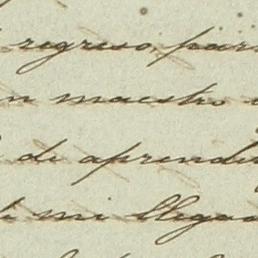 regreso par
n maestro
de aprendi
mi llega